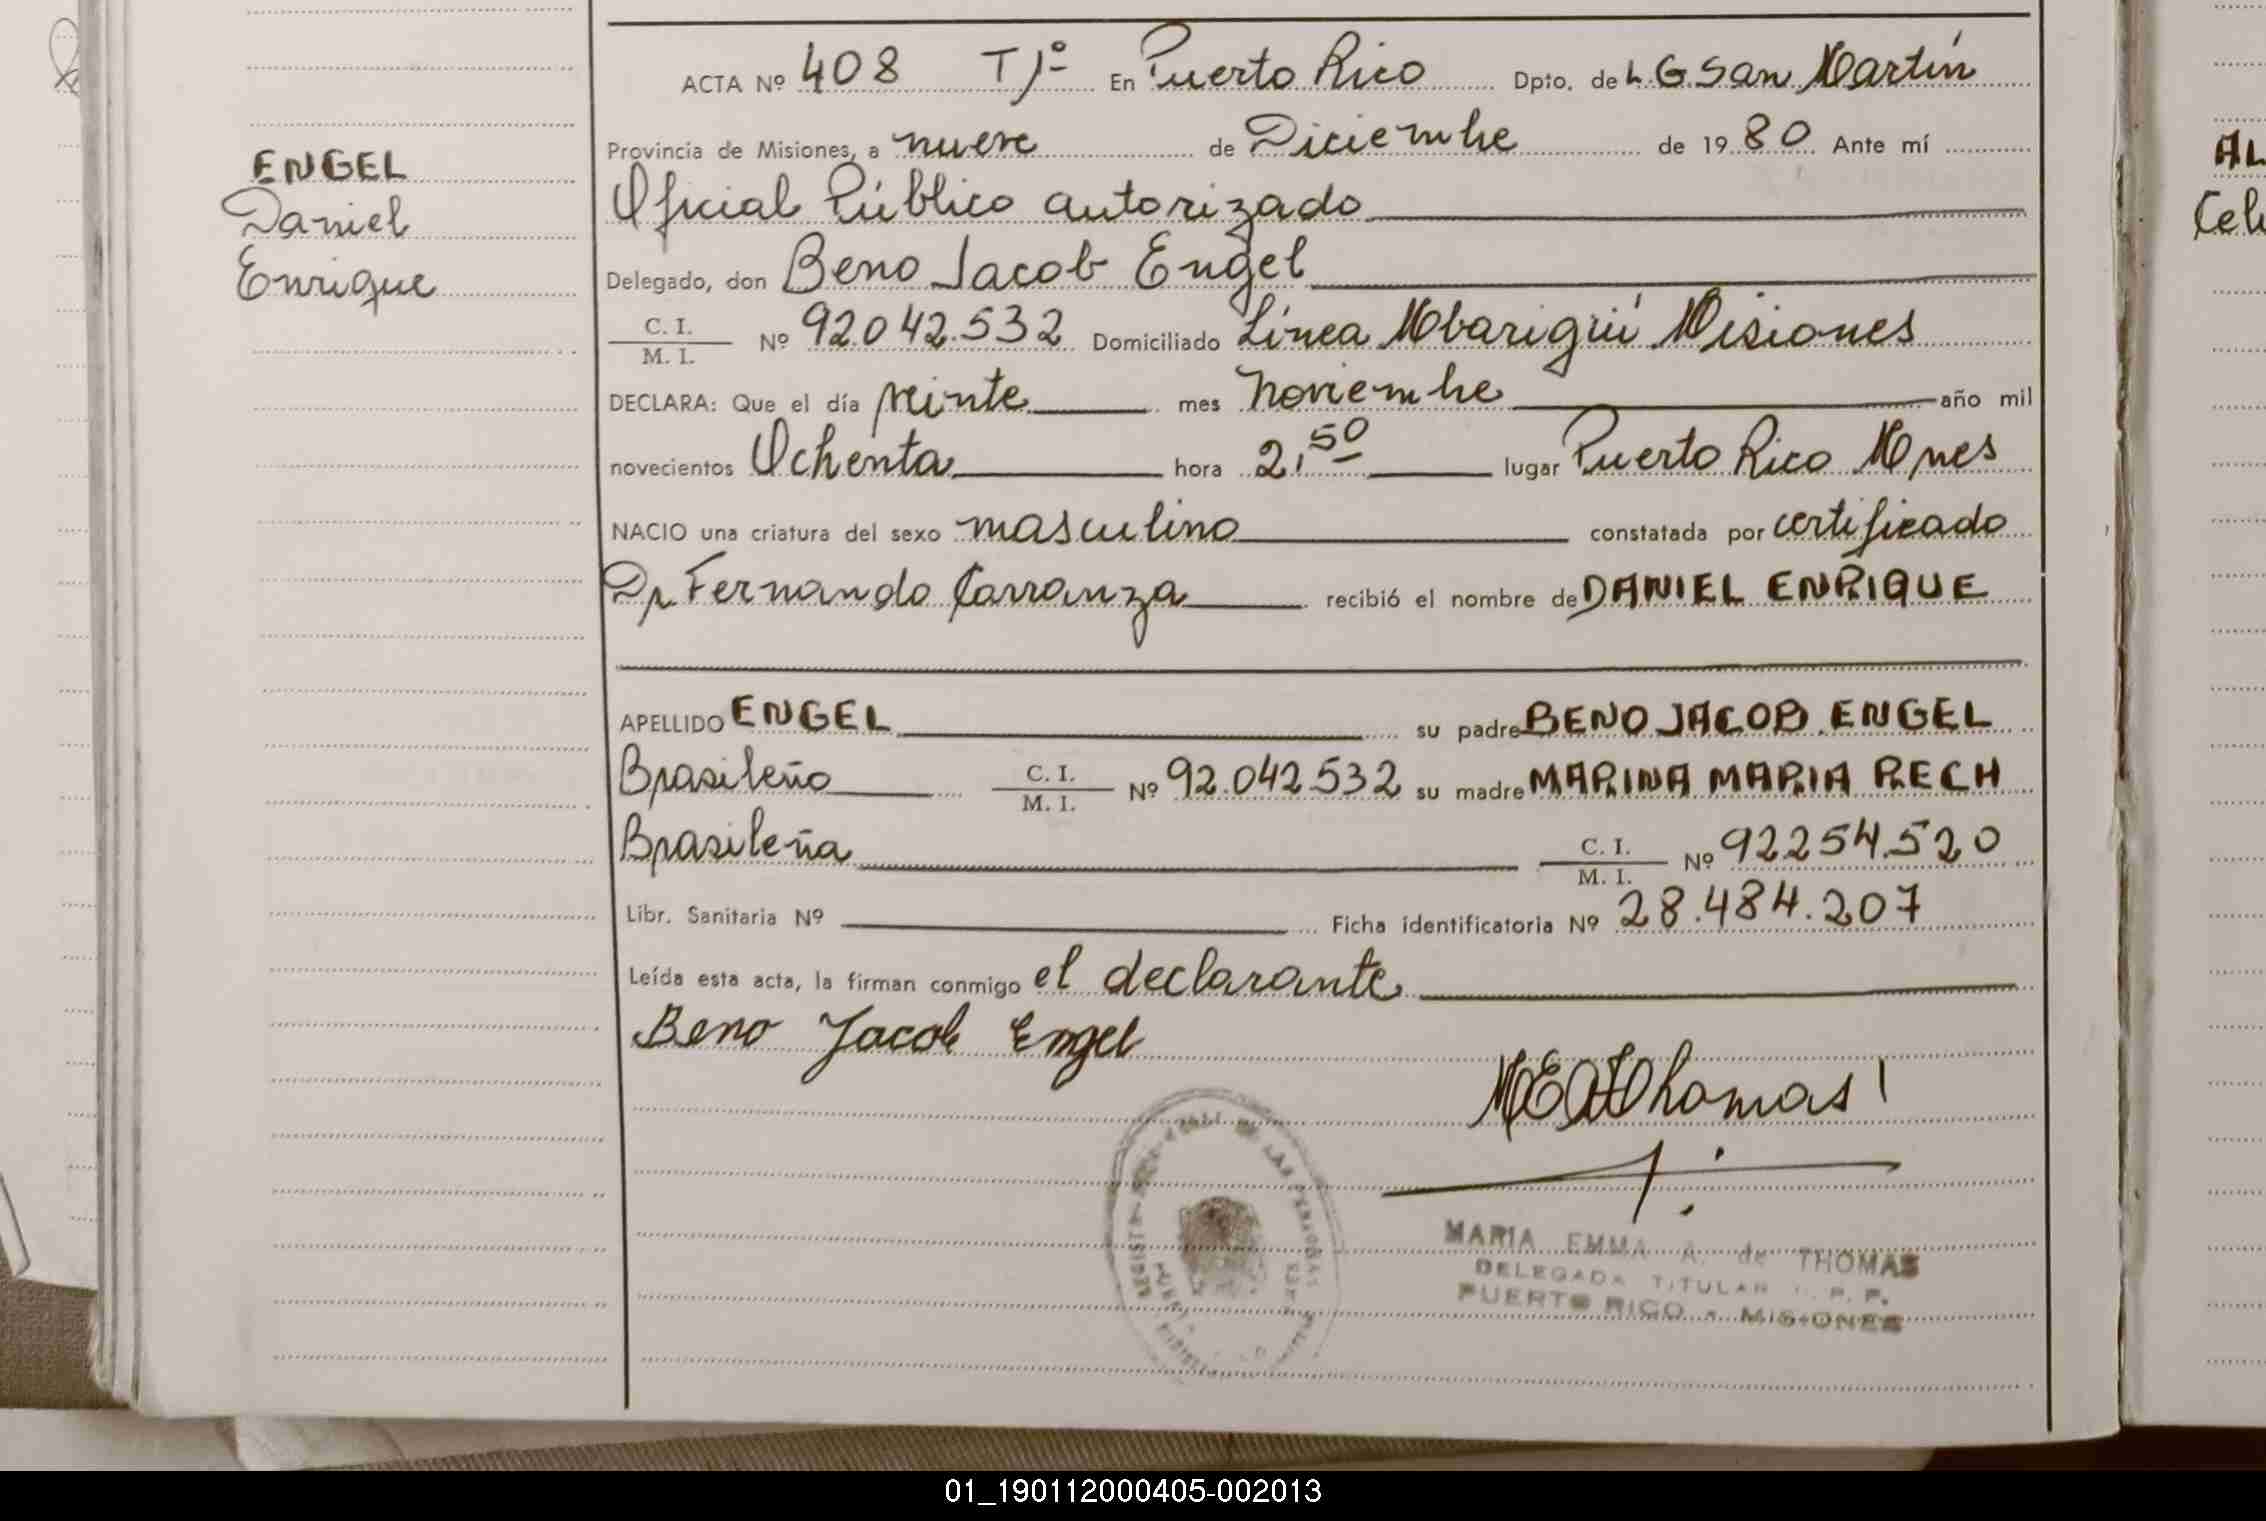 ACTA Nº 408 T Iº En Puerto Rico Dpto. de L. G. San Martín
Provincia de Misiones, a nueve de Diciembre de 1980 Ante mí
Oficial Público autorizado
Delegado, don Beno Jacob Engel
C. I.
M. I. Nº 92.042.532 Domiciliado Línea Mbarigüi Misiones
DECLARA: Que el día veinte mes noviembre año mil
novecientos Ochenta hora 2,50 lugar Puerto Rico Mnes
NACIO una criatura del sexo masculino constatada por certificado
Dr. Fernando Carranza recibió el nombre de DANIEL ENRIQUE
APELLIDO ENGEL su padre BENO JACOB ENGEL
Brasileño C. I. M. I. Nº 92.042.532 su madre MARINA MARIA RECH
Brasileña C. I. M. I. Nº 92254.520
Libr. Sanitaria Nº Ficha identificatoria Nº 28.484.207
Leída esta acta, la firman conmigo el declarante
Beno Jacob Engel
Thomas
MARIA EMMA A. de THOMAS
DELEGADA TITULAR R. P.
PUERTO RICO - MISIONES
DE LAS PERSONAS
ENGEL
Daniel
Enrique
AL
Cel
01_190112000405-002013